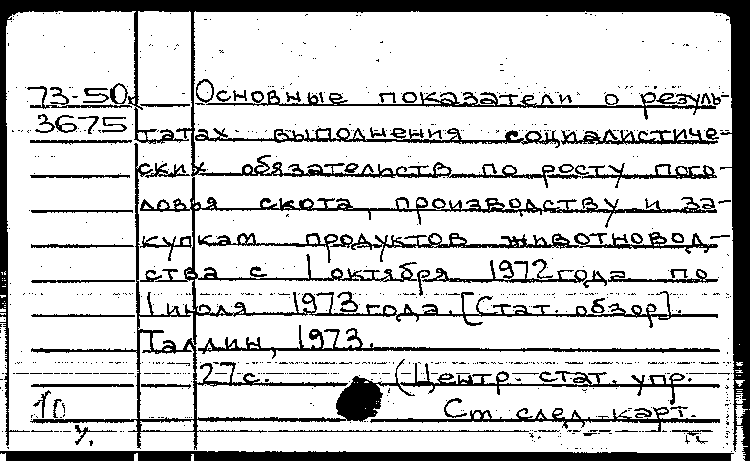 73-50к Основные показатели о резуль-
3675 татах выполнения социалистиче-
ских обязательств по росту пого-
ловья скота, производству и за-
купкам продуктов животновод-
ства с 1 октября 1972 года по
1 июля 1973 года. [Стат. обзор].
Таллин, 1973.
27 с. (Центр. стат. упр.
10 См след. карт.
у.